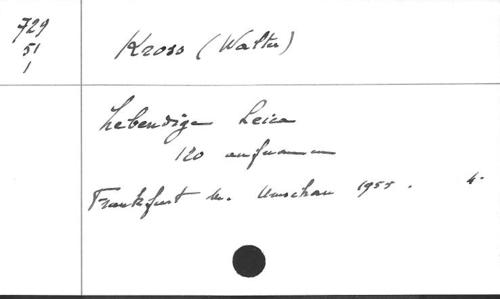 729
51
1
Kross (Walter)
Lebendige Leica
120 aufnamen
Frankfurt M. Umschau 1955. 4.